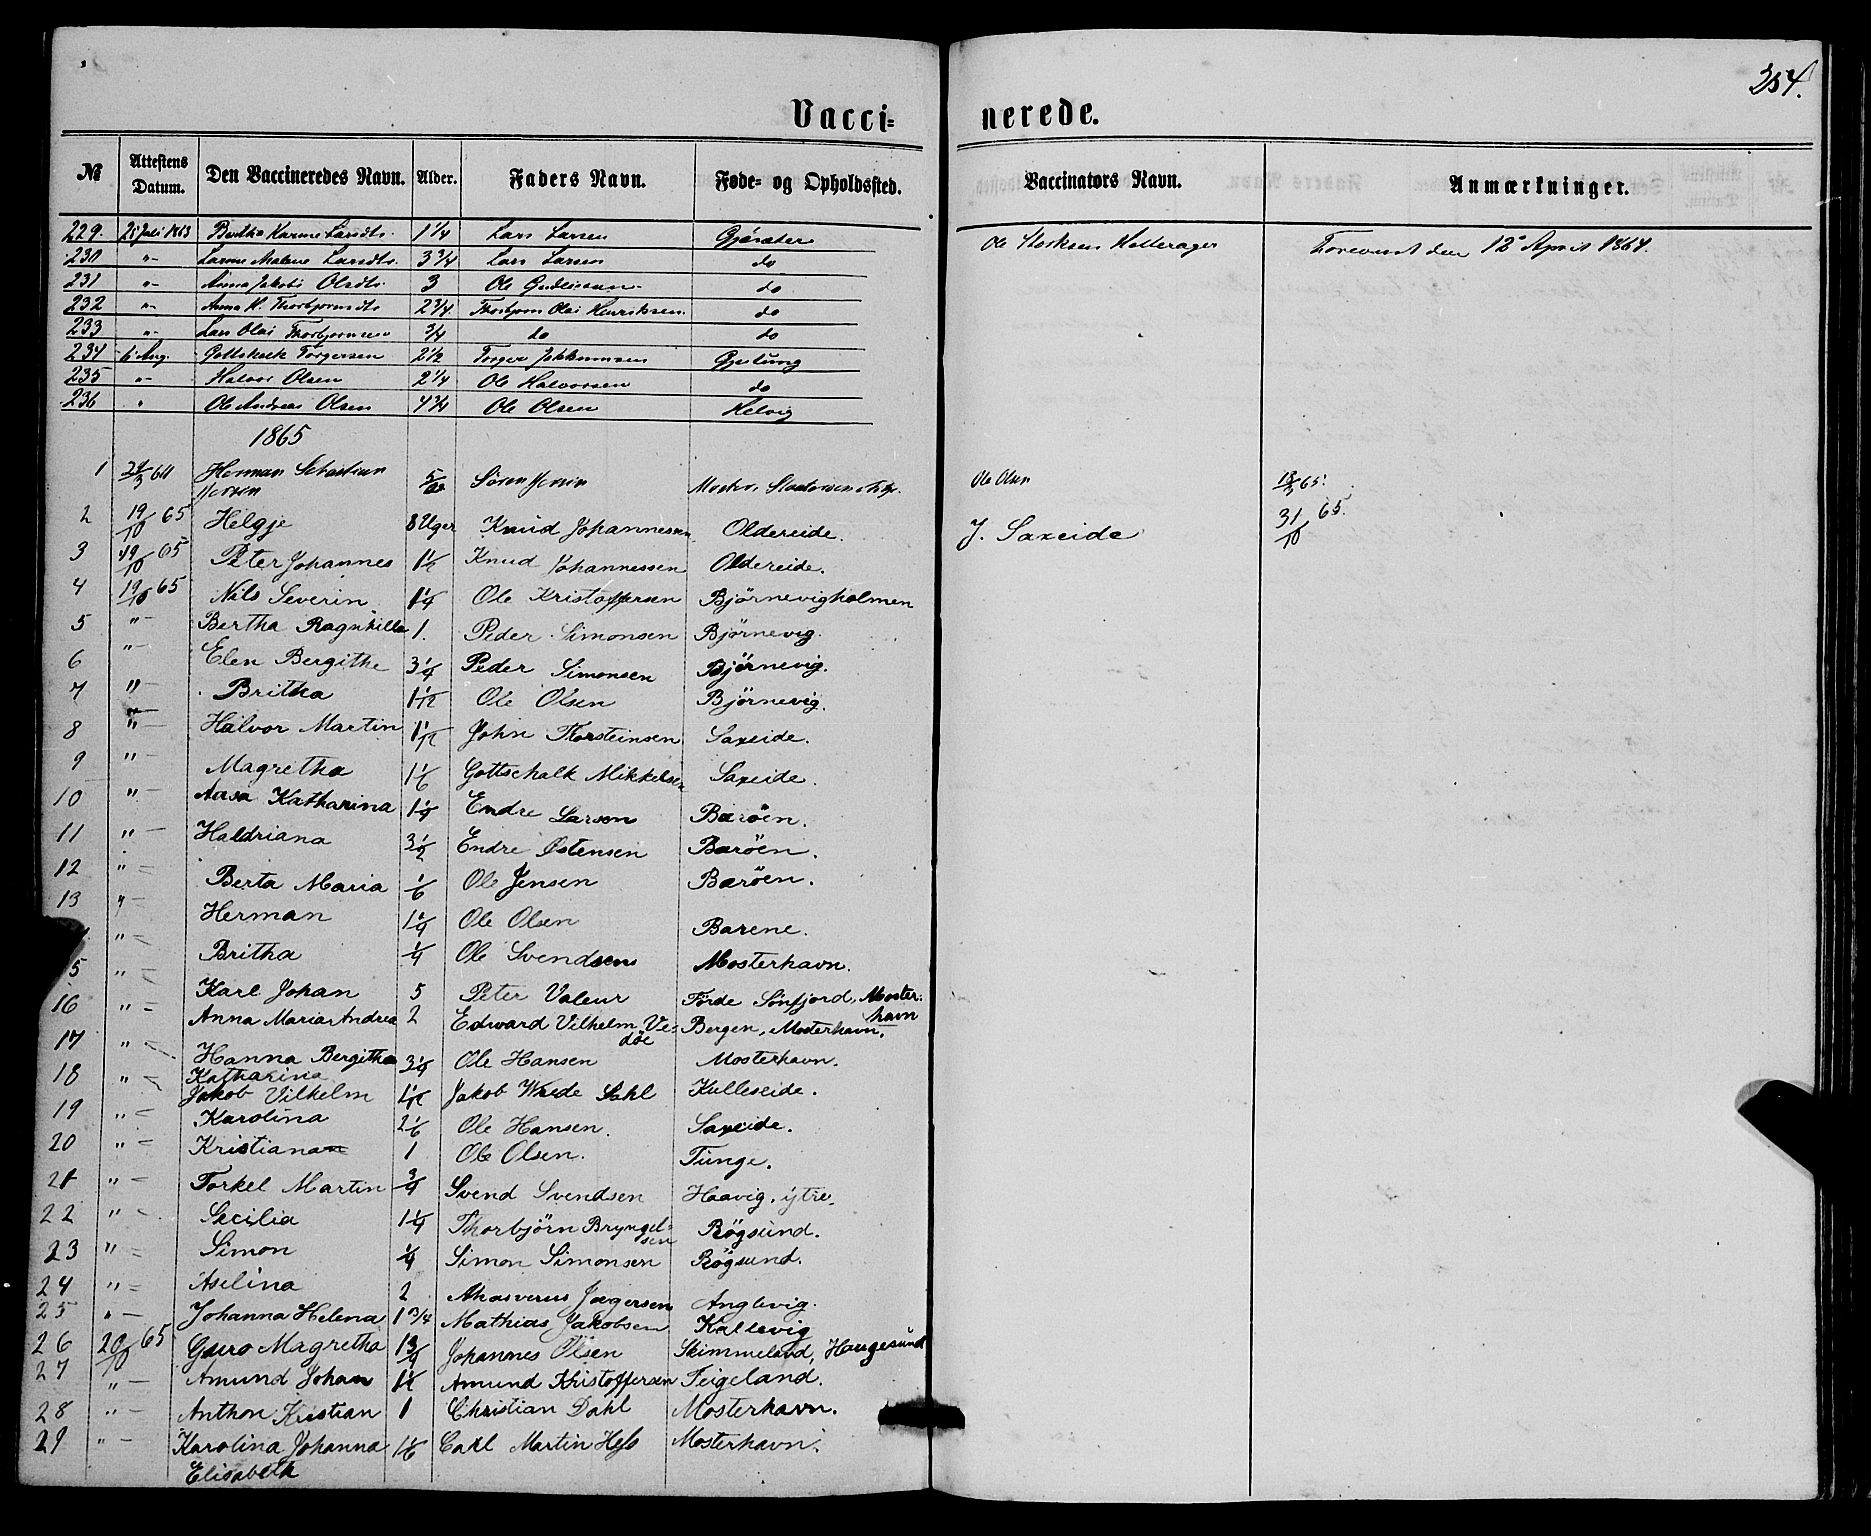 254.
Vacci=nerede.
№ Attestens Datum. Den Vaccineredes Navn. Alder. Faders Navn. Føde= og Opholdssted. Vaccinators Navn. Anmærkninger.
229. Juli 1863 Bertha Karine Larsdtr. 1 1/4 Lars Larsen Gjøsæter Ole Forevist den 12 April 1864.
230 "- Malene Larsdtr. 3 3/4 Lars Larsen do
231 "- Anna Olsdtr. 3 Ole do
232 "- Anna K. Thorbjornsdtr 2 3/4 Thorbjorn Olai Henriksen. do
233 "- Lars Olai Thorbjornsen 3/4 do do
234 6 Aug. Gottskalk Torgersen 2 1/2 Torger
235 "- Halvor Olsen 2 1/4 Ole Halvorsen do
236 " Ole Andreas Olsen 4 3/4 Ole Olsen
1865
1 Herman Sebastian Sören Ole Olsen 65.
2 19/10 65 Helgje 8 Uger Knud Johannessen Oldereide. J. Saxeide 31/10 65.
3 19/10 65 Peter Johannes Knud Johannessen Oldereide.
4 19/10 65 Nils Severin 1 1/4 Ole Kristoffersen Björnevigholmen
5 "- Bertha Ragnhilla 1. Peder Simonsen Björnevig.
6 "- Elen Bergithe 3 1/4 Peder Simonsen Björnevig.
7 "- Britha 1 1/12 Ole Olsen Björnevig.
8 "- Halvor Martin John Thorsteinsen Saxeide.
9 "- Magretha 1 1/6 Gottschalk Mikkelsen Saxeide.
10 "- Aasa Katharina 1 1/4 Endre Larsen Baröen.
11 "- Haldriana 3 1/2 Endre Østensen Baröen.
12 "- Berta Maria 1/6 Ole Jensen Baröen.
13 "- Herman 1 1/4 Ole Olsen Barene.
"- Britha 1/4 Ole Svendsen Mosterhavn.
5 "- Karl Johan 5 Peter Valeur Förde Sönfjord, Moster-
havn
16 "- Anna Maria Andrea 2 Edward Vilhelm Ve= Bergen, Mosterhavn.
döe
17 "- Hanna Bergitha 3 1/4 Ole Hansen Mosterhavn.
Katharina
18 "- Jakob Vilhelm Jakob Wrede Sahl Kulleseide.
19 "- Karolina 2 1/6 Ole Hansen. Saxeide.
20 "- Kristiana 1 Ole Olsen. Tunge.
21 "- Torkel Martin 3/4 Svend Svendsen Haavig, ytre.
22 "- Secilia 1 1/4 Thorbjörn Bryngel= Rögsund.
sen
23 "- Simon 1/4 Simon Simonsen Rögsund.
24 "- Aselina 2 Ahasverus Jægersen Anglevig.
25 "- Johanna Helena 1 3/4 Mathias Jakobsen Kallevig
26 20/10 65 Guro Magretha 1 3/4 Johannes Olsen Skimmeland, Haugesund
27 "- Amund Johan Amund Kristoffersen Feigeland.
28 "- Anthon Kristian 1 Christian Dahl Mosterhavn.
29 "- Karolina Johanna 1 1/6 Carl Martin Hess Mosterhavn.
Elisabeth